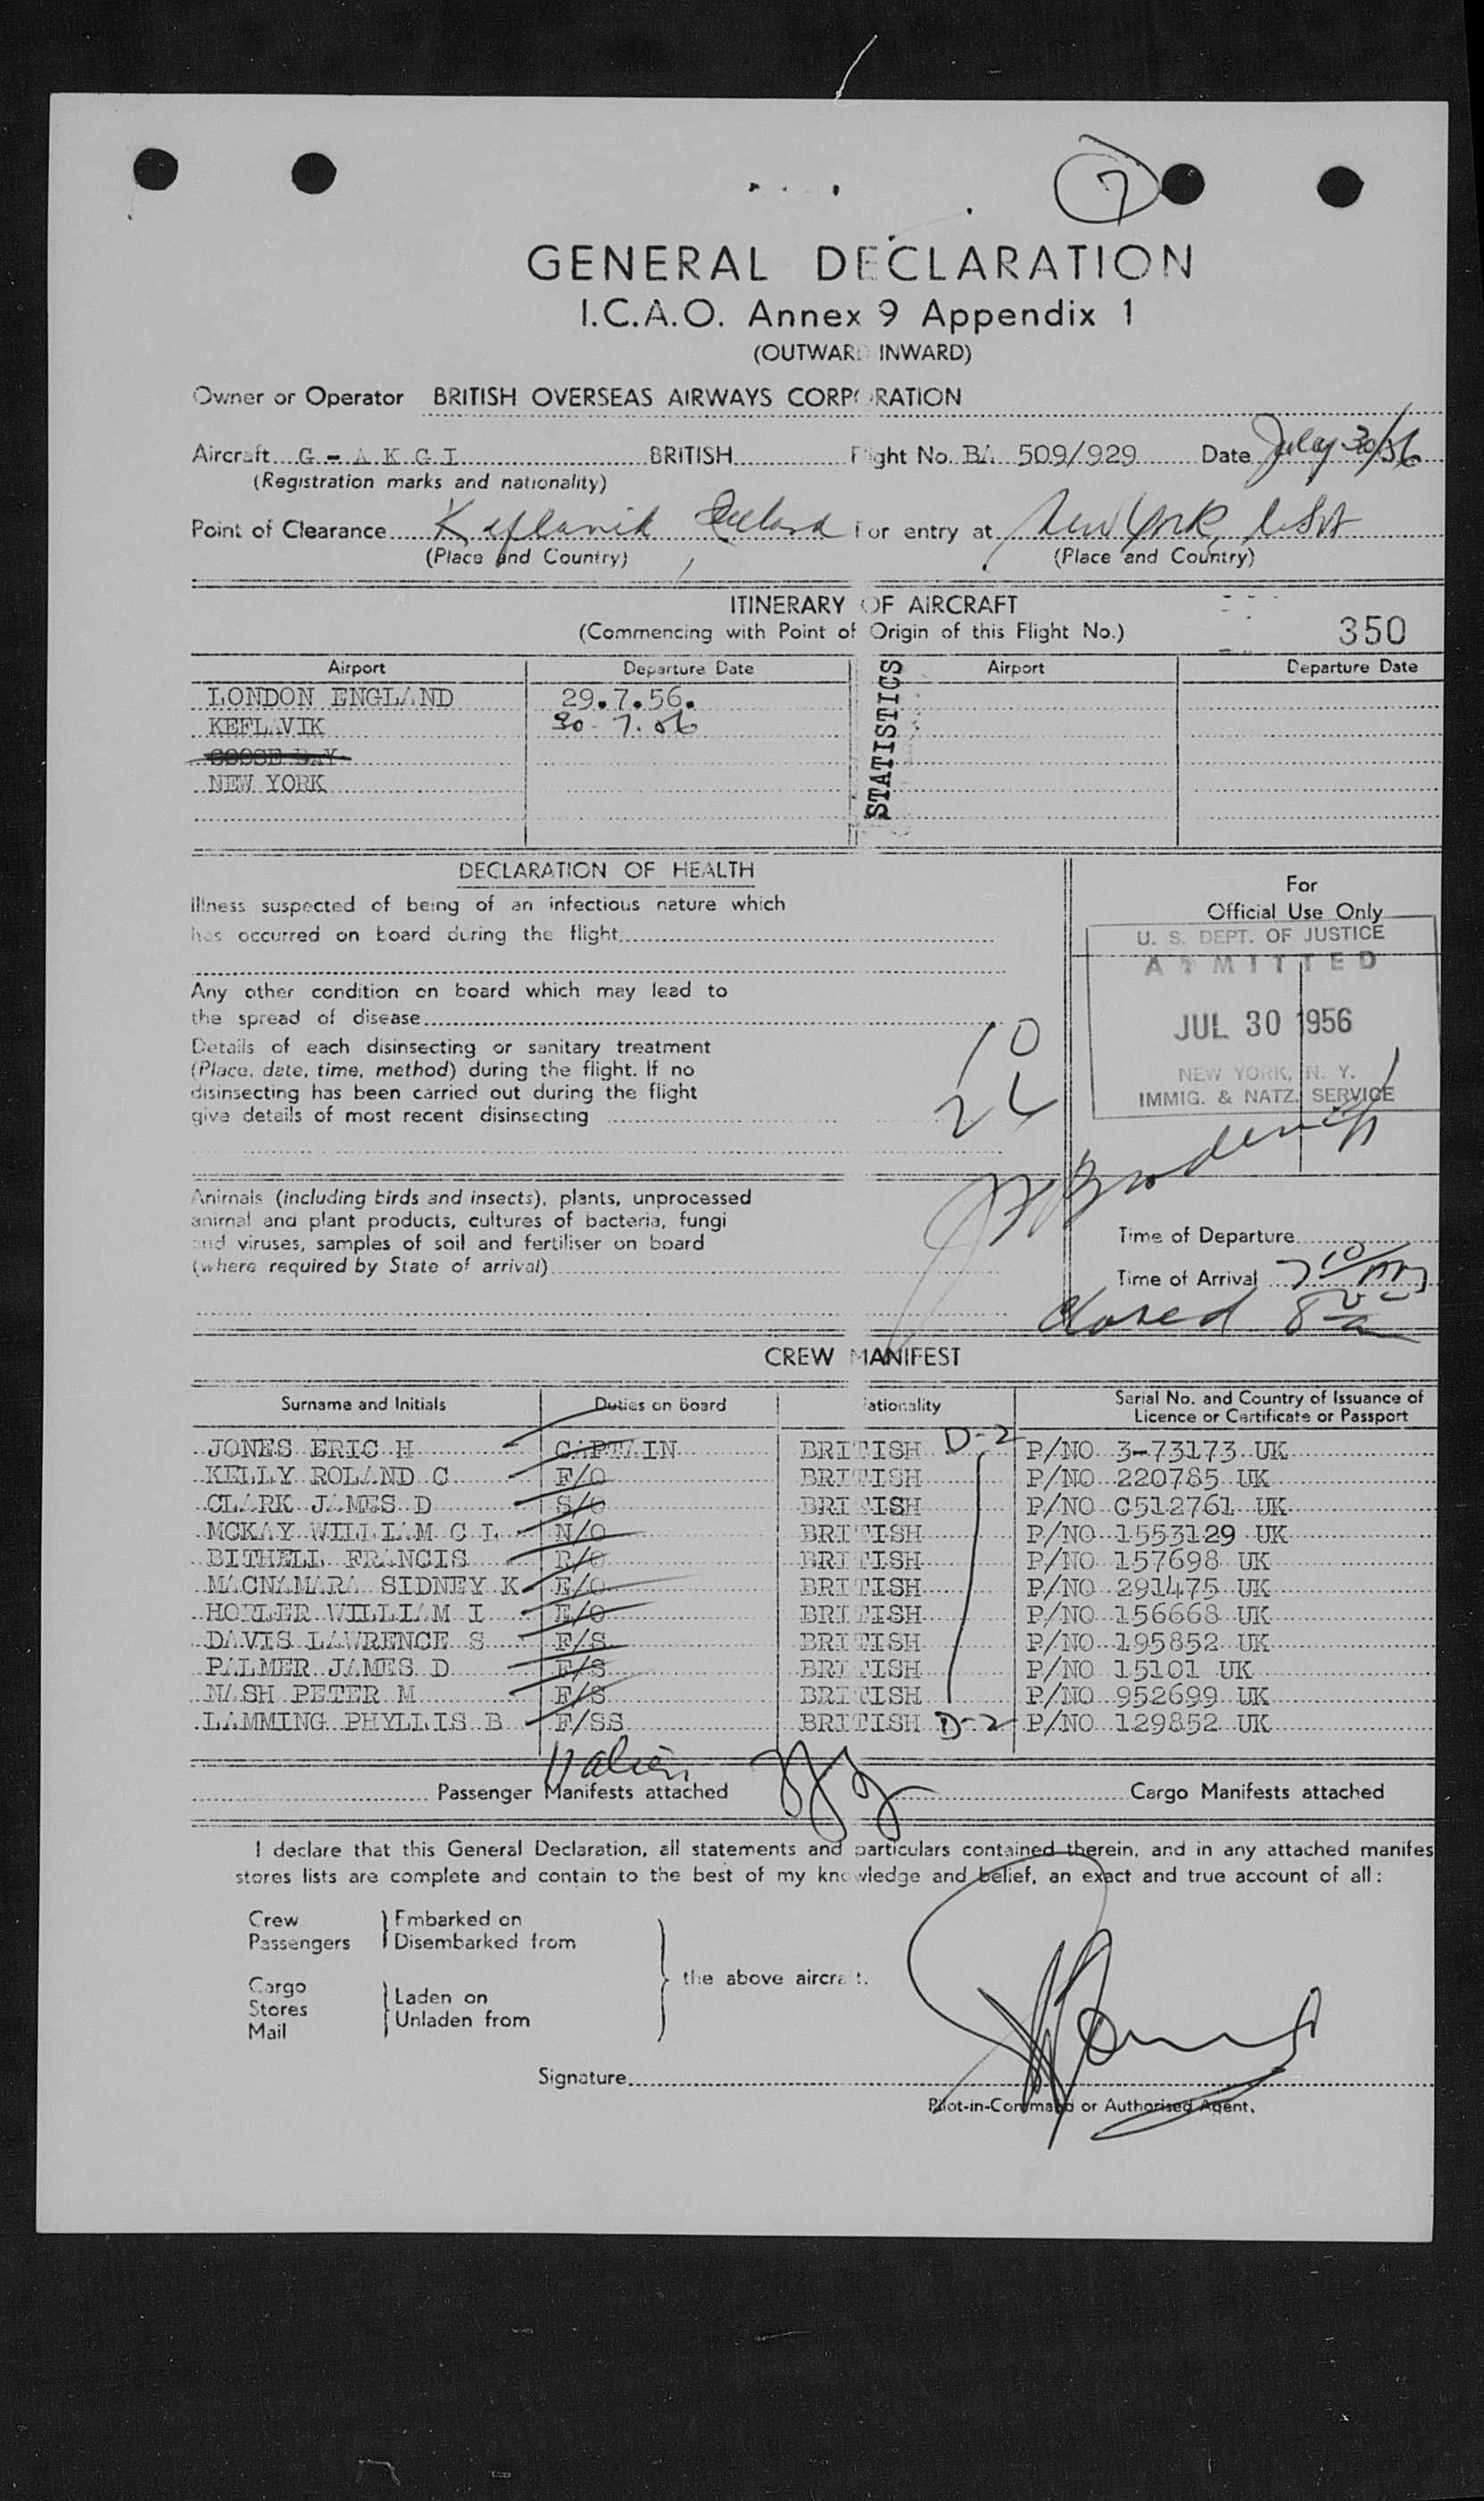 7
GENERAL DECLARATION
I.C.A.O. Annex 9 Appendix 1
(OUTWARD INWARD)
Owner or Operator BRITISH OVERSEAS AIRWAYS CORPORATION
Aircraft G - A K G I BRITISH Flight No. BA 509/929 Date July 30/56
(Registration marks and nationality)
Point of Clearance Keflavik Iceland For entry at New York, USA
(Place and Country) (Place and Country)
ITINERARY OF AIRCRAFT
(Commencing with Point of Origin of this Flight No.) 350
Airport Departure Date STATISTICS Airport Departure Date
LONDON ENGLAND 29.7.56.
KEFLAVIK 30-7.56
GOOSE BAY
NEW YORK
DECLARATION OF HEALTH
Illness suspected of being of an infectious nature which
has occurred on board during the flight
Any other condition on board which may lead to
the spread of disease
Details of each disinsecting or sanitary treatment
(Place, date, time, method) during the flight. If no
disinsecting has been carried out during the flight
give details of most recent disinsecting
10
26
For
Official Use Only
U. S. DEPT. OF JUSTICE
ADMITTED
JUL 30 1956
NEW YORK, N. Y.
IMMIG. & NATZ. SERVICE
Animals (including birds and insects), plants, unprocessed
animal and plant products, cultures of bacteria, fungi
and viruses, samples of soil and fertiliser on board
(where required by State of arrival)
Time of Departure
Time of Arrival 7 10
closed 8
CREW MANIFEST
Surname and Initials Duties on Board Nationality Serial No. and Country of Issuance of Licence or Certificate or Passport
JONES ERIC H CAPTAIN BRITISH D-2 P/NO 3-73173 UK
KELLY ROLAND C F/O BRITISH P/NO 220785 UK
CLARK JAMES D S/O BRITISH P/NO C512761 UK
MCKAY WILLIAM C L N/O BRITISH P/NO 1553129 UK
BITHELL FRANCIS R/O BRITISH P/NO 157698 UK
MACNAMARA SIDNEY K E/O BRITISH P/NO 291475 UK
HORLER WILLIAM I E/O BRITISH P/NO 156668 UK
DAVIS LAWRENCE S F/S BRITISH P/NO 195852 UK
PALMER JAMES D F/S BRITISH P/NO 15101 UK
NASH PETER M F/S BRITISH P/NO 952699 UK
LAMMING PHYLLIS B F/SS BRITISH D-2 P/NO 129852 UK
11 alien
Passenger Manifests attached Cargo Manifests attached
I declare that this General Declaration, all statements and particulars contained therein, and in any attached manifes
stores lists are complete and contain to the best of my knowledge and belief, an exact and true account of all:
Crew Embarked on
Passengers Disembarked from
the above aircraft.
Cargo
Stores Laden on
Mail Unladen from
Signature
Pilot-in-Command or Authorised Agent.